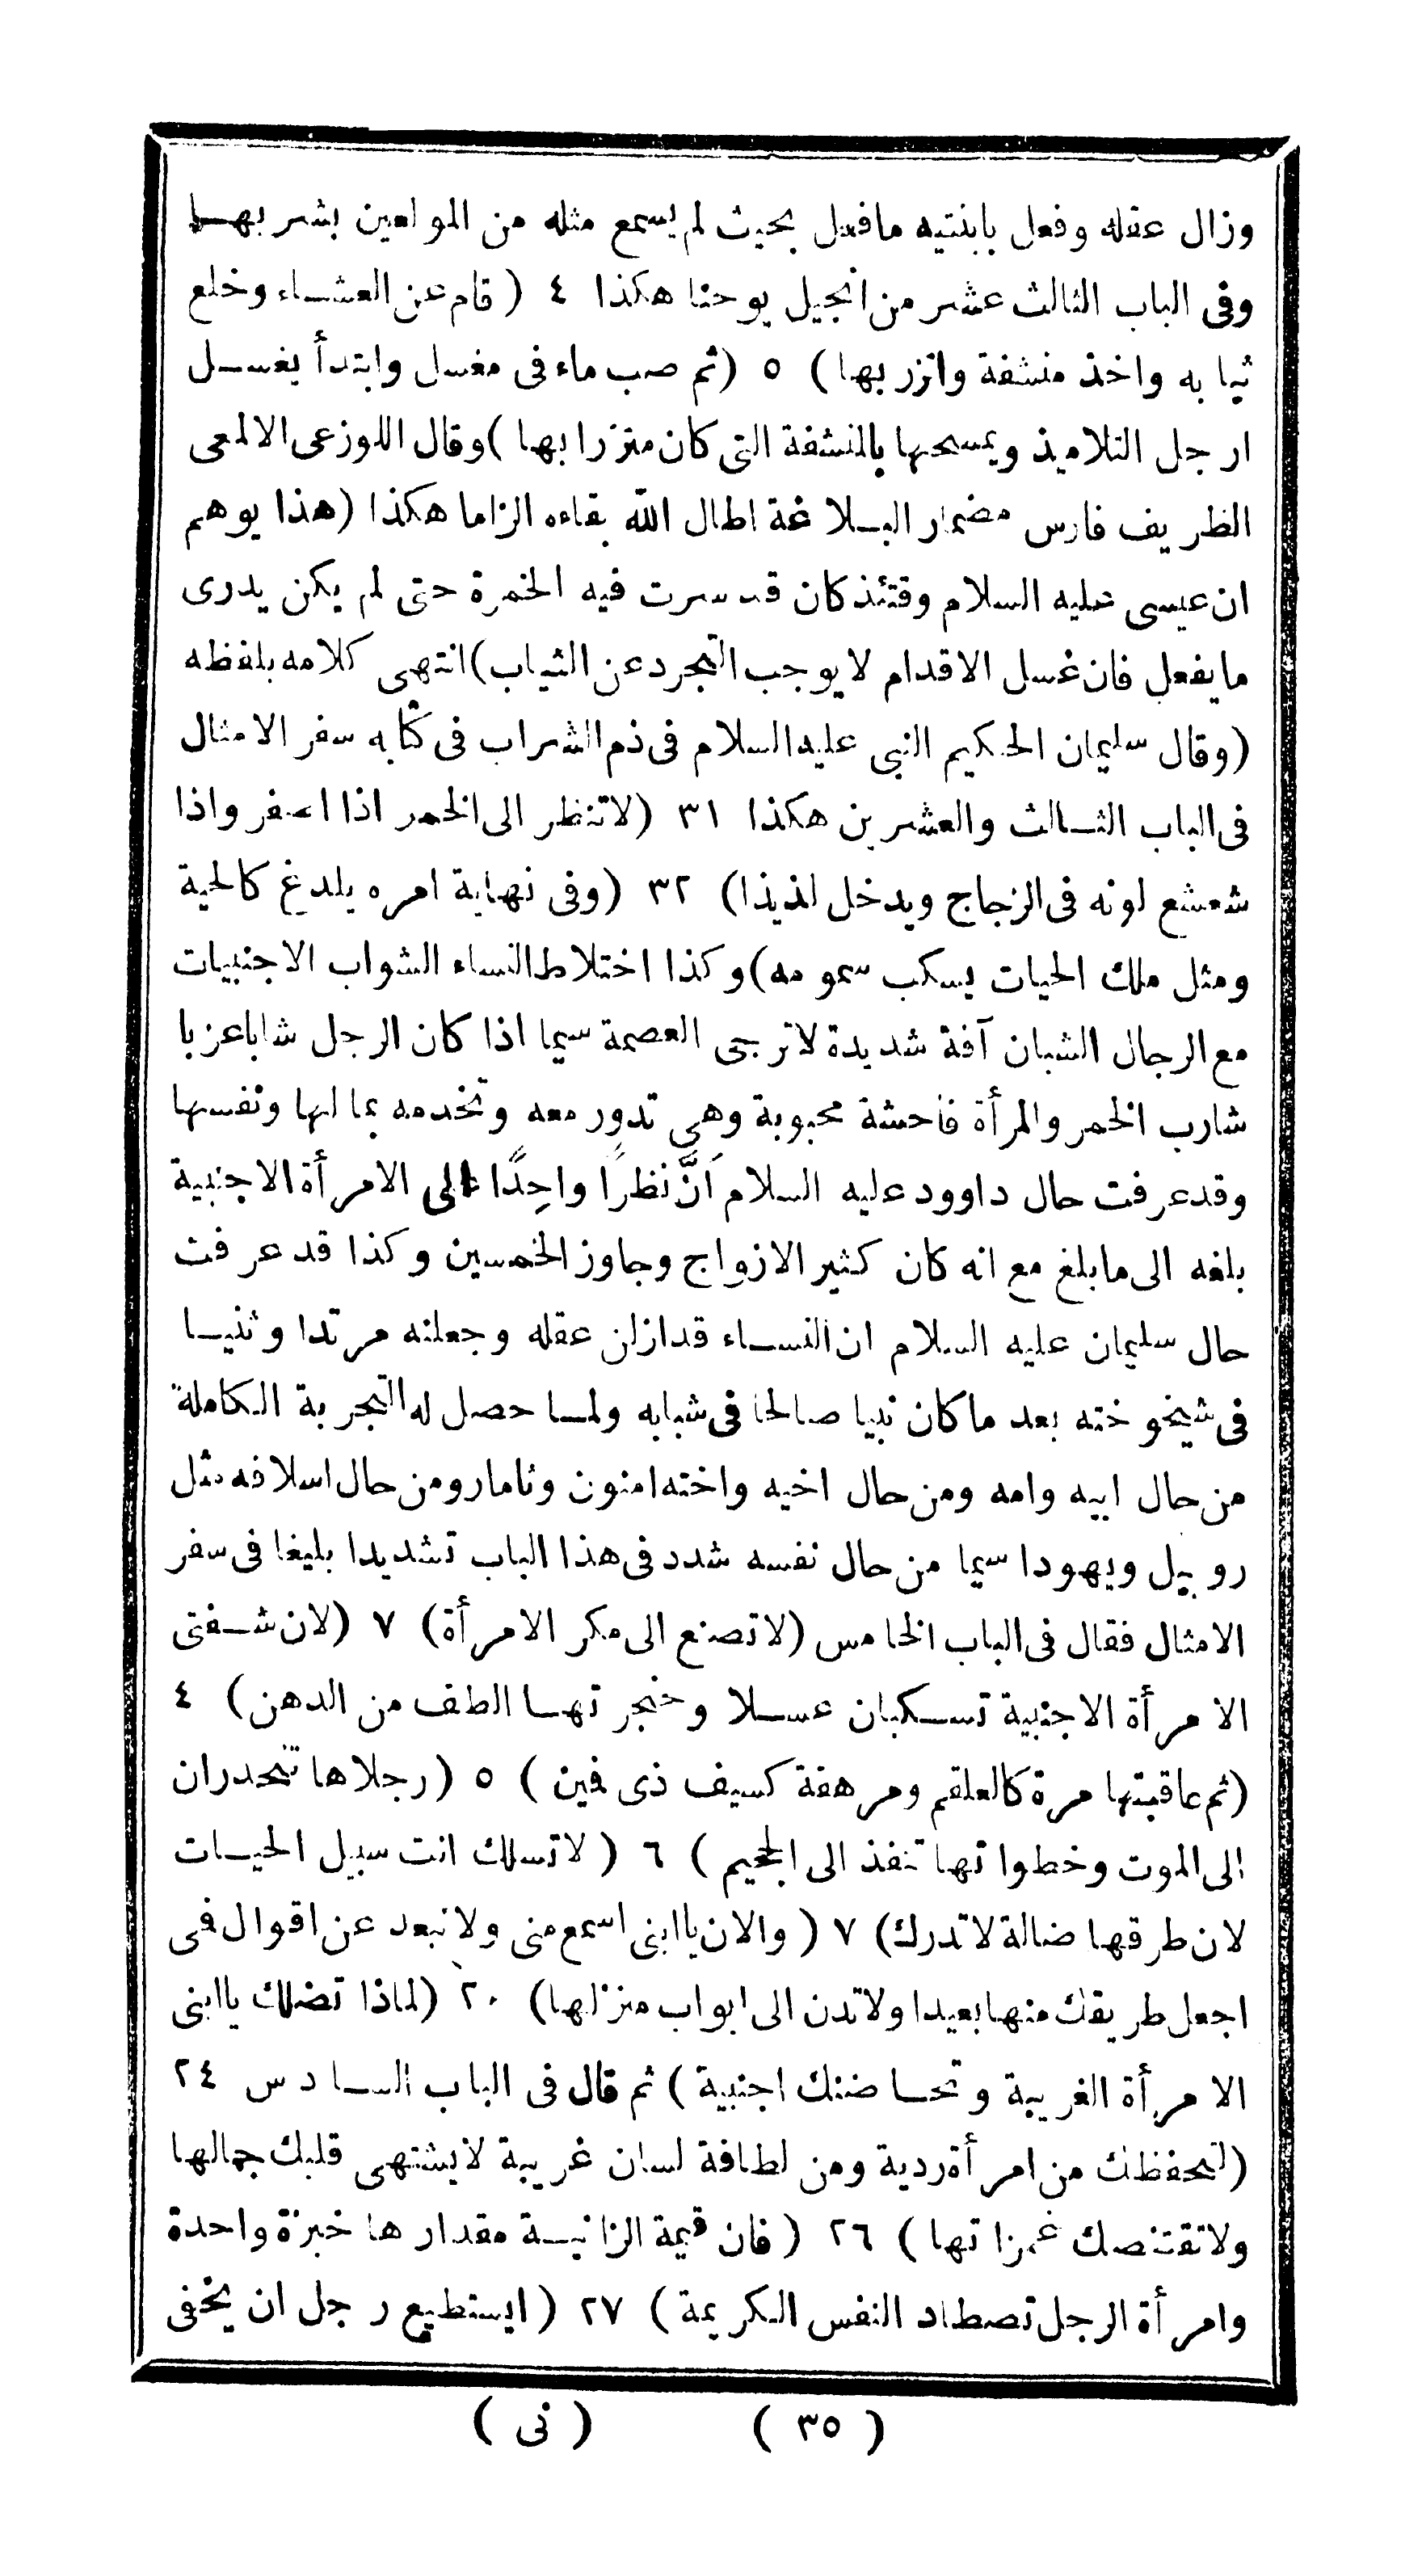 وزال عقله وفعل بابنتيه مافعل بحيث لم يسمع مثله من المولعين بشربها
وفى الباب الثالث عشر من انجيل يوحنا هكذا ٤ (قام عن العشاء وخلع
ثيابه واخذ منشفة واتزر بها) ٥ (ثم صب ماء فى مغسل وابتدأ يغسل
ارجل التلاميذ ويمسحها بالمنشفة التى كان متزرا بها) وقال اللوزعى الالمعى
الظريف فارس مضمار البلاغة اطال الله بقاءه الزاما هكذا (هذا يوهم
ان عيسى عليه السلام وقتئذ كان قد سرت فيه الخمرة حتى لم يكن يدرى
ما يفعل فان غسل الاقدام لا يوجب التجرد عن الثياب) انتهى كلامه بلفظه
(وقال سليمان الحكيم النبى عليه السلام فى ذم الشراب فى كتابه سفر الامثال
فى الباب الثالث والعشرين هكذا ٣١ (لا تنظر الى الخمر اذا اصفر واذا
شعشع لونه فى الزجاج ويدخل لذيذا) ٣٢ (وفى نهاية امره يلدغ كالحية
ومثل ملك الحيات يسكب سمومه) وكذا اختلاط النساء الشواب الاجنبيات
مع الرجال الشبان آفة شديدة لا ترجى العصمة سيما اذا كان الرجل شابا عزبا
شارب الخمر والمرأة فاحشة محبوبة وهى تدور معه وتخدمه بمالها ونفسها
وقد عرفت حال داوود عليه السلام اَنَّ نظرًا واحِدًا الى الامرأة الاجنبية
بلغه الى ما بلغ مع انه كان كثير الازواج وجاوز الخمسين وكذا قد عرفت
حال سليمان عليه السلام ان النساء قد ازلن عقله وجعلنه مرتدا وثنيا
فى شيخوخته بعد ما كان نبيا صالحا فى شبابه ولما حصل له التجربة الكاملة
من حال ابيه وامه ومن حال اخيه واخته امنون وثامار ومن حال اسلافه مثل
روبيل ويهودا سيما من حال نفسه شدد فى هذا الباب تشديدا بليغا فى سفر
الامثال فقال فى الباب الخامس (لا تصنع الى مكر الامرأة) ٧ (لان شفتى
الامرأة الاجنبية تسكبان عسلا وحنجرتها الطف من الدهن) ٤
(ثم عاقبتها مرة كالعلقم ومرهفة كسيف ذى فين) ٥ (رجلاها تنحدران
الى الموت وخطواتها تنفذ الى الجحيم) ٦ (لا تسلك انت سبيل الحيات
لان طرقها ضالة لا تدرك) ٧ (والان يا ابنى اسمع منى ولا تبعد عن اقوال فى
اجعل طريقك منها بعيدا ولا تدن الى ابواب منزلها) ٢٠ (لماذا تضلك يا ابنى
الامرأة الغريبة وتحاضنك اجنبية) ثم قال فى الباب السادس ٢٤
(لتحفظك من امرأة ردية ومن لطافة لسان غريبة لا يشتهى قلبك جمالها
ولا تقتنصك غمزاتها) ٢٦ (فان قيمة الزانية مقدارها خبزة واحدة
وامرأة الرجل تصطاد النفس الكريمة) ٢٧ (ايستطيع رجل ان يخفى
(٣٥) (نى)